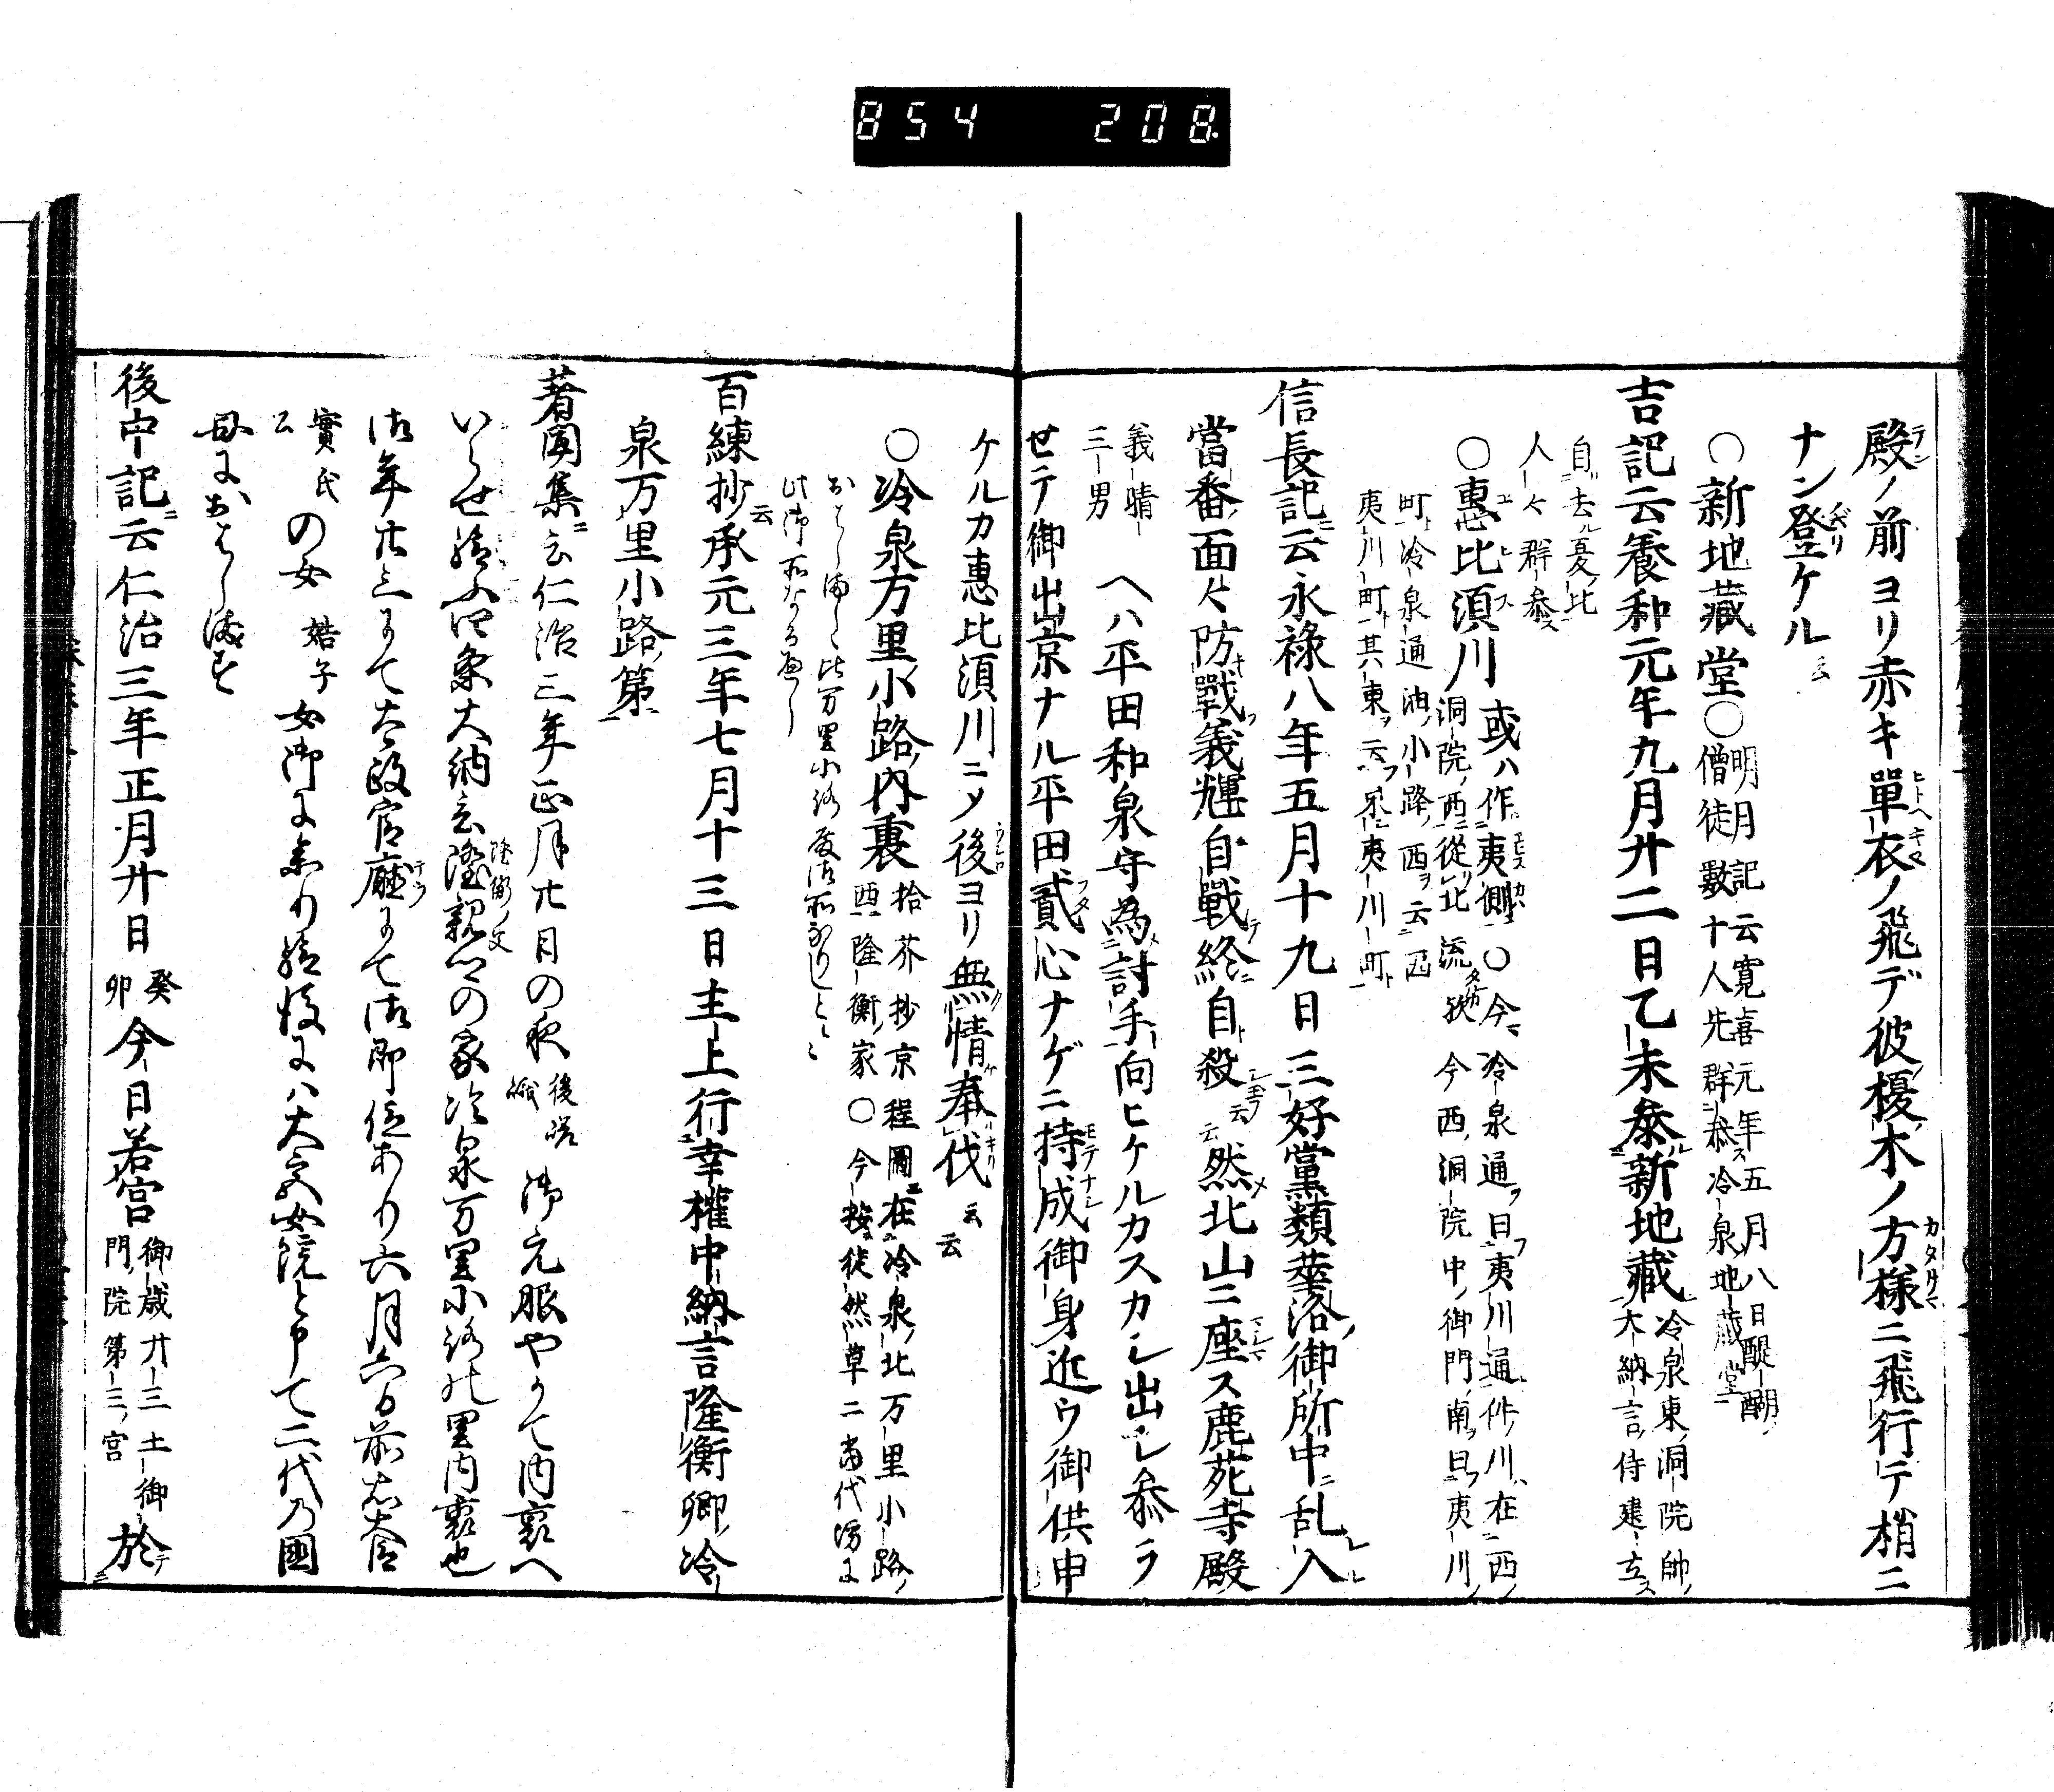 854 208
殿ノ前ヨリ赤キ單衣ノ飛デ彼榎木ノ方様ニ飛行テ梢ニ
ナン登ケル云
○新地藏堂○明月記云寛喜元年五月八日醍醐
僧徒數十人先群参冷泉地藏堂
吉記云養和元年九月廿二日乙未參新地藏冷泉東洞院帥
大納言侍建立
自去夏比
人々群参
○惠比須川或ハ作夷側○今冷泉通ヲ曰夷川通件川在西
洞院西從北流歟今西洞院中御門南曰夷川
町冷泉通油小路西ヲ云西
夷川町其東ヲ云東夷川町
信長記云永祿八年五月十九日三好黨類華洛御所中ニ乱入
當番面々防戰義輝自戰終自殺云云然北山ニ座ス鹿苑寺殿
義晴
三男
ヘハ平田和泉守為討手向ヒケルカスカシ出シ參ラ
セテ御出京ナル平田貳心ナゲニ持成御身近ウ御供申
ケルカ惠比須川ニメ後ヨリ無情奉伐云云
○冷泉万里小路内裏拾芥抄京程圖在冷泉北万里小路
西隆衡家○今按徒然草ニ當代
百練抄云承元三年七月十三日主上行幸權中納言隆衡卿冷
泉万里小路第
著聞集云仁治三年正月廿日の夜後嵯峨御元服やかて内裏へ
いらせ給ふ四条大納言隆親卿の家冷泉万里小路の里内裏也
御年廿三にて太政官廳にて御即位あり六月六日前右大臣
實氏公の女姞子女御に参り給後には大宮女院と申て二代乃國
母におはします
後中記云仁治三年正月廿日癸卯今日若宮御歳廿三土御
門院第三宮於